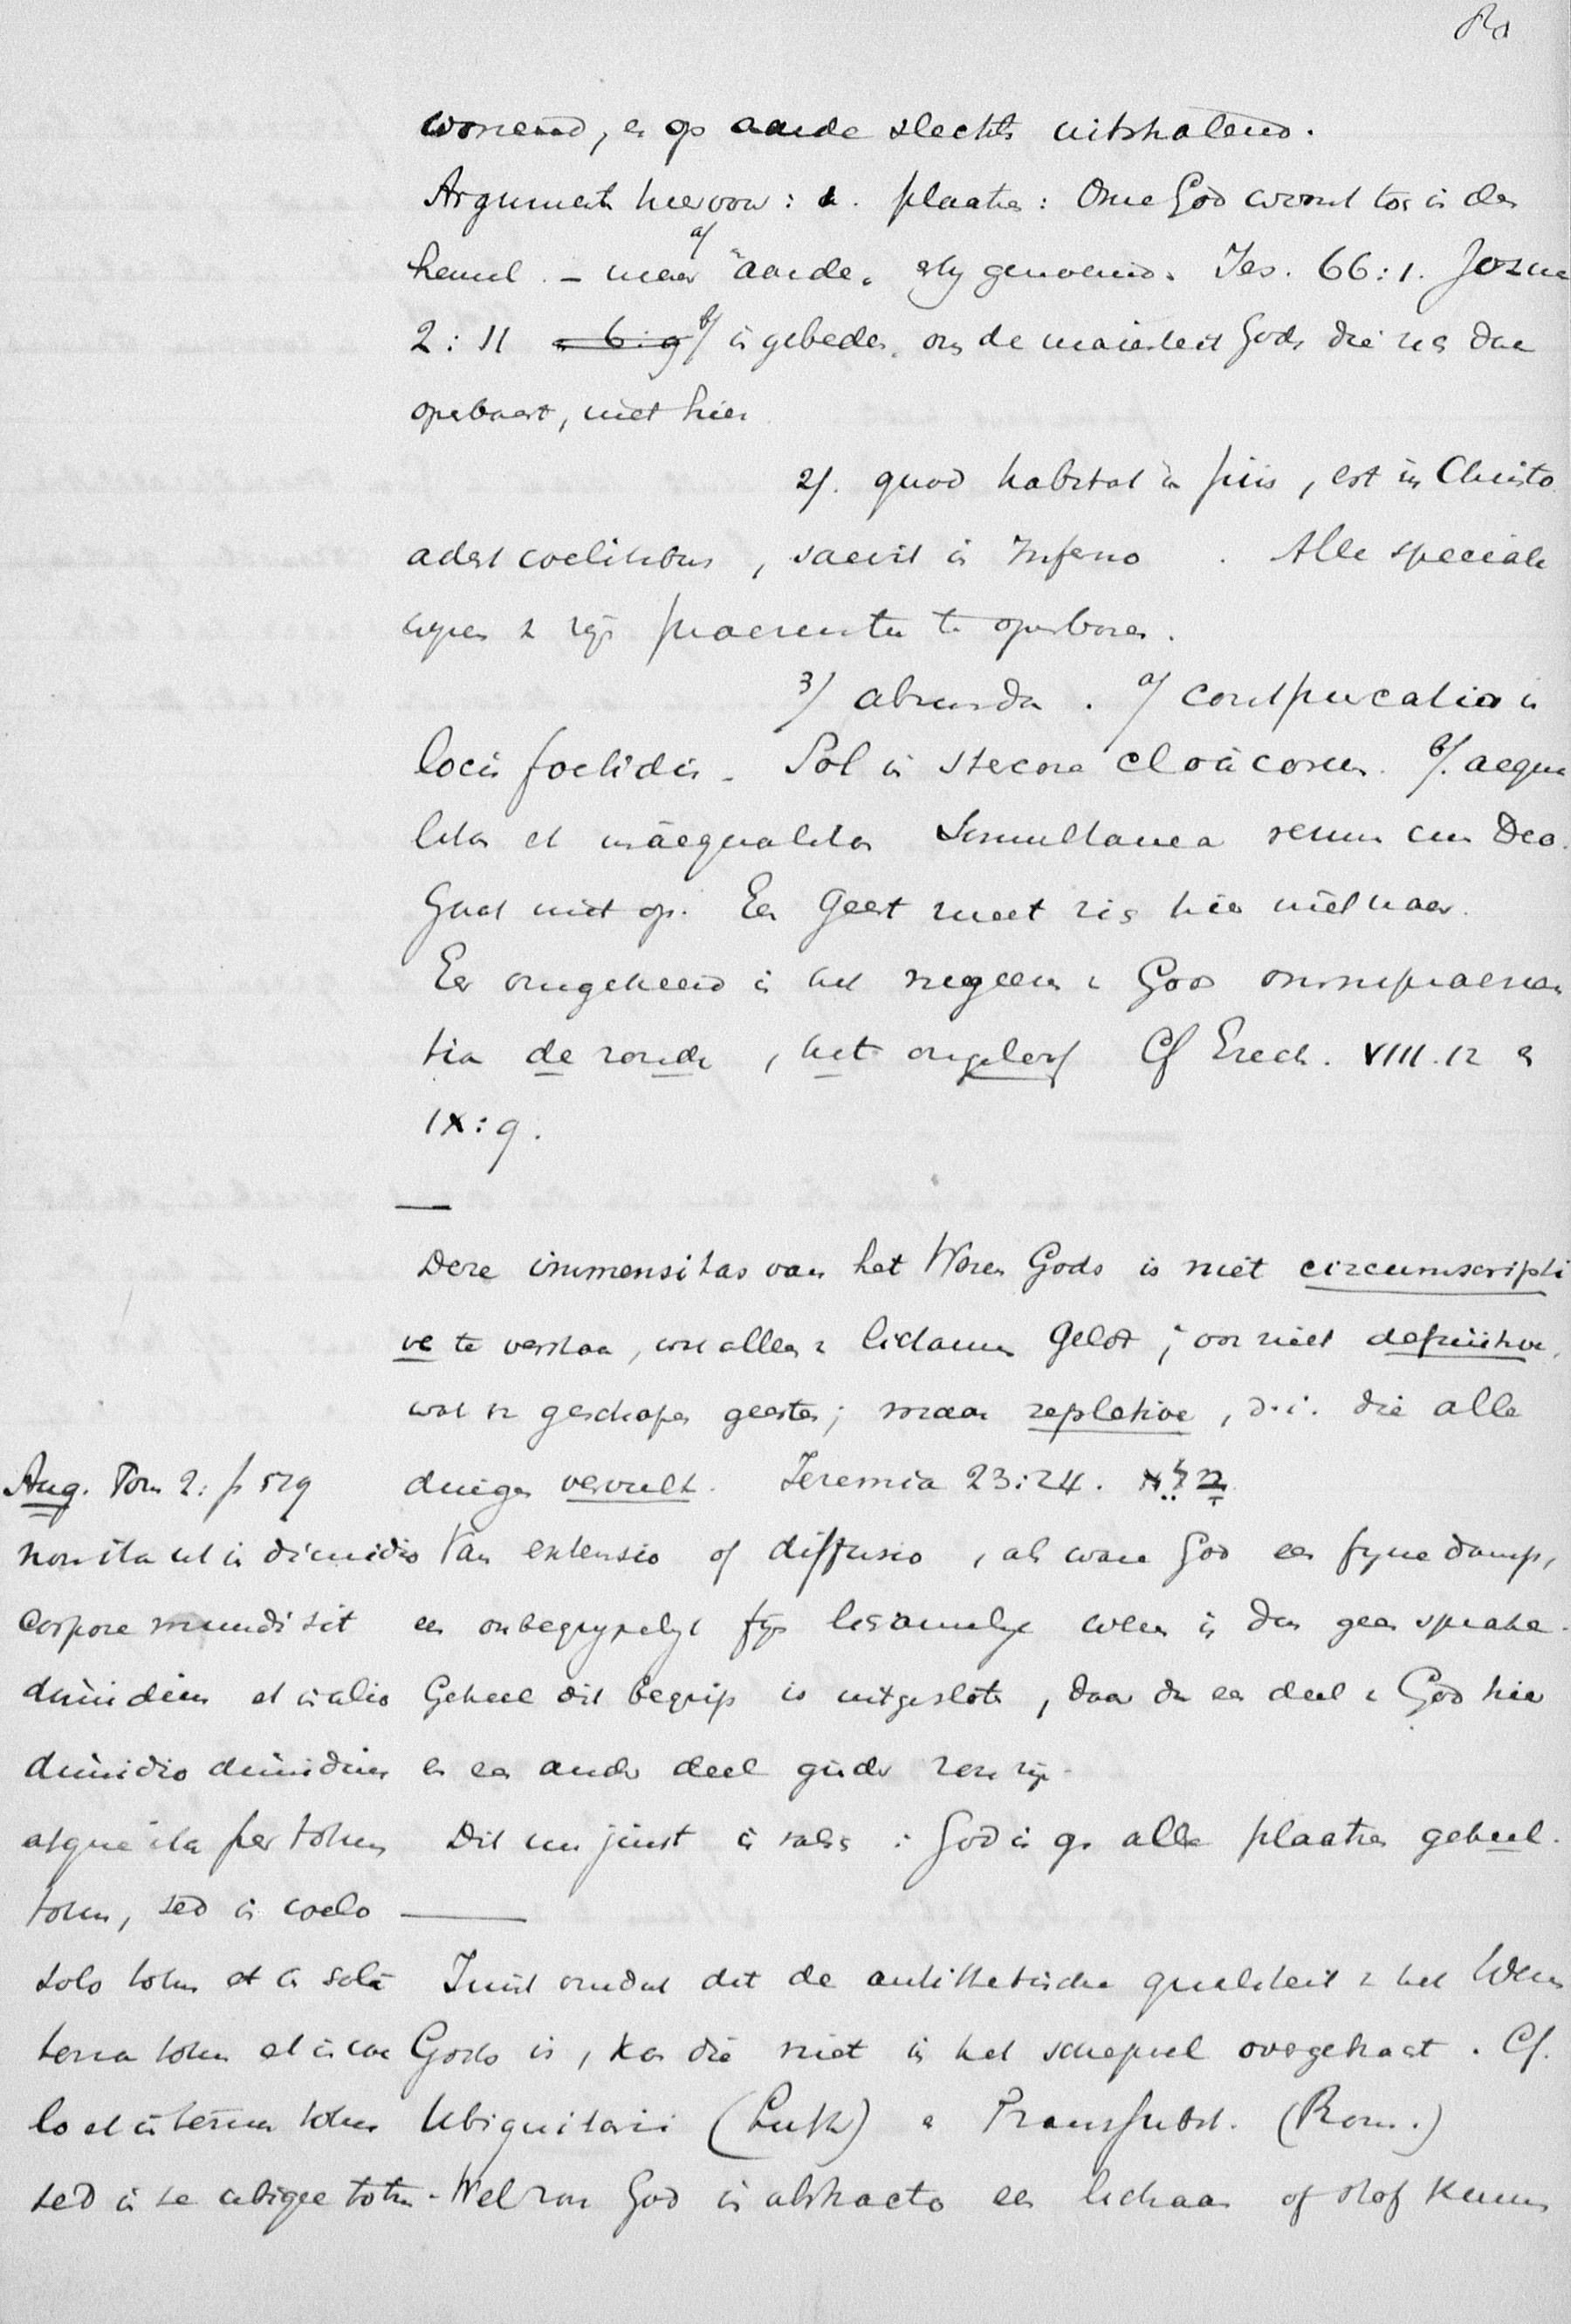 wonend, en op aarde slechts uitstralend.
Argument hiervoor: 1. plaatsen: Onze God woont toch in den
hemel. – maar a/ "aarde" erbij genoemd. Jes. 66:1. Jozua
2:11 b/ in gebeden, om de majesteit Gods die zich daar
openbaart, niet hier
2/. quod habitat in piis, est in Christo
adest coelitibus, saevit in Inferno. Alle speciale
wyzen v zijn praesentie te openbaren.
3/ absurda. a/ conspurcatio in
locis foetidis. Sol in stercore cloacorum. b/. aequa
litas et inaequalitas simultanea rerum cum Deo.
Gaat niet op. Een Geest meet zich hier niet naar.
En omgekeerd is het negeeren v Gods omnipraesen
tia de zonde, het ongeloof Cf Ezech. VIII.12 &
IX:9.
Deze immensitas van het Wezen Gods is niet circumscripti
ve te verstaan, wat alleen v lichamen geldt; ook niet definitive,
wat v geschapen geesten; maar repletive, d.i. die alle
dingen vervult. Jeremia 23:24. מָלֵא
Van extensio of diffusio, als ware God een fyne damp,
een onbegrypelyk fyn lichamelyk wezen is dan geen sprake.
Geheel dit begrip is uitgesloten, daar dan een deel v God hier
en een ander deel ginds zou zijn.
Dit nu juist is valsch: God is op alle plaatsen geheel.
Juist omdat dit de antithetische qualiteit v het Wezen
Gods is, kan die niet in het schepsel overgebracht. Cf.
Ubiquitarii (Luth) & Transsubst. (Rom.)
Wel zou God in abstracto een lichaam of stof kunnen
Aug. Tom 2: p 529
non ita ut in dimidio
corpore mundi sit
dimidius et in alio
dimidio dimidius
atque ita per totum
totus, sed in coelo
solo totus et in sola
terra totus et in coe
lo et in terra totus
sed in se ubique totus.